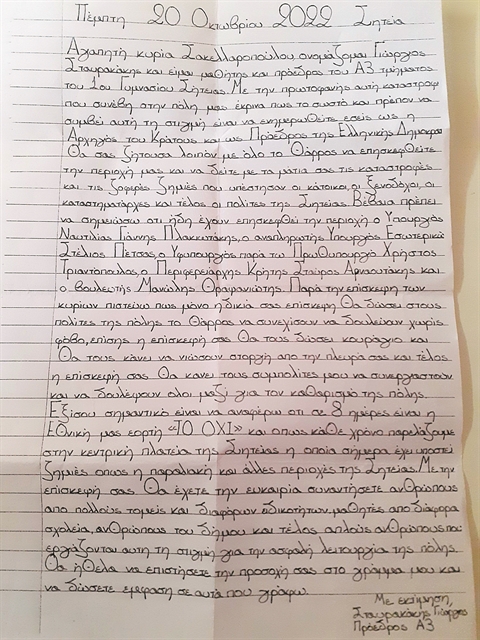 Πέμπτη 20 Οκτωβρίου 2022 Σητεία
Αγαπητή κυρία Σακελλαροπούλου, ονομάζομαι Γιώργος
Σταυρακάκης και είμαι μαθητής και πρόεδρος του Α3 τμήματος
του 1ου Γυμνασίου Σητείας. Με την πρωτοφανής αυτή καταστροφή
που συνέβη στην πόλη μας έκρινα πως το σωστό και πρέπον να
συμβεί αυτή τη στιγμή είναι να ενημερωθείτε εσείς ως η
Αρχηγός του Κράτους και ως Πρόεδρος της Ελληνικής Δημοκρα
Θα σας ζητούσα λοιπόν με όλο το θάρρος να επησκεφθείτε
την περιοχή μας και να δείτε με τα μάτια σας τις καταστροφές
και τις ζοφερές ζημιές που υπέστησαν οι κάτοικοι, οι ξενοδόχοι, οι
καταστηματάρχες και τέλος οι πολίτες της Σητείας. Βέβαια πρέπει
να σημειώσω οτι ήδη έχουν επησκεφθεί την περιοχή ο Υπουργός
Ναυτιλίας Γιάννης Πλακιωτάκης, ο αναπληρωτής Υπουργός Εσωτερικώ
Στέλιος Πέτσας, ο Υφυπουργός παρά τω Πρωθυπουργό Χρήστος
Τριαντόπουλος, ο Περιφερειάρχης Κρήτης Σταύρος Αρναουτάκης και
ο βουλευτής Μανώλης Θραψανιώτης. Παρά την επίσκεψη των
κυρίων πιστεύω πως μόνο η δικιά σας επίσκεψη θα δώσει στους
πολίτες της πόλης το θάρρος να συνεχίσουν να δουλεύουν χωρίς
φόβο, επίσης η επίσκεψή σας θα τους δώσει κουράγιο και
θα τους κάνει να νιώσουν στοργή απο την πλευρά σας και τέλος
η επίσκεψή σας θα κανει τους συμπολίτες μου να συνεργαστούν
και να δουλέψουν ολοι μαζί για τον καθαρισμό της πόλης.
Εξίσου σημαντικό είναι να αναφέρω οτι σε 8 ημέρες είναι η
Εθνική μας εορτή «ΤΟ ΟΧΙ» και οπως κάθε χρόνο παρελάζουμε
στην κεντρική πλατεία της Σητείας η οποία σήμερα έχει υποστεί
ζημιές οπως η παραλιακή και άλλες περιοχές της Σητείας. Με την
επίσκεψή σας θα έχετε την ευκαιρία συναντήσετε ανθρώπους
απο πολλούς τομείς και διαφόρων ειδικοτήτων, μαθητές απο διάφορα
σχολεία, ανθρώπους του δήμου και τέλος απλούς ανθρώπους που
εργάζονται αυτη τη στιγμή για την ασφαλή λειτουργία της πόλης.
Θα ήθελα να επιστήσετε την προσοχή σας στο γράμμα μου και
να δώσετε έμφαση σε αυτά που γράφω.
Με εκτίμηση,
Σταυρακάκης Γιώργος
Πρόεδρος Α3